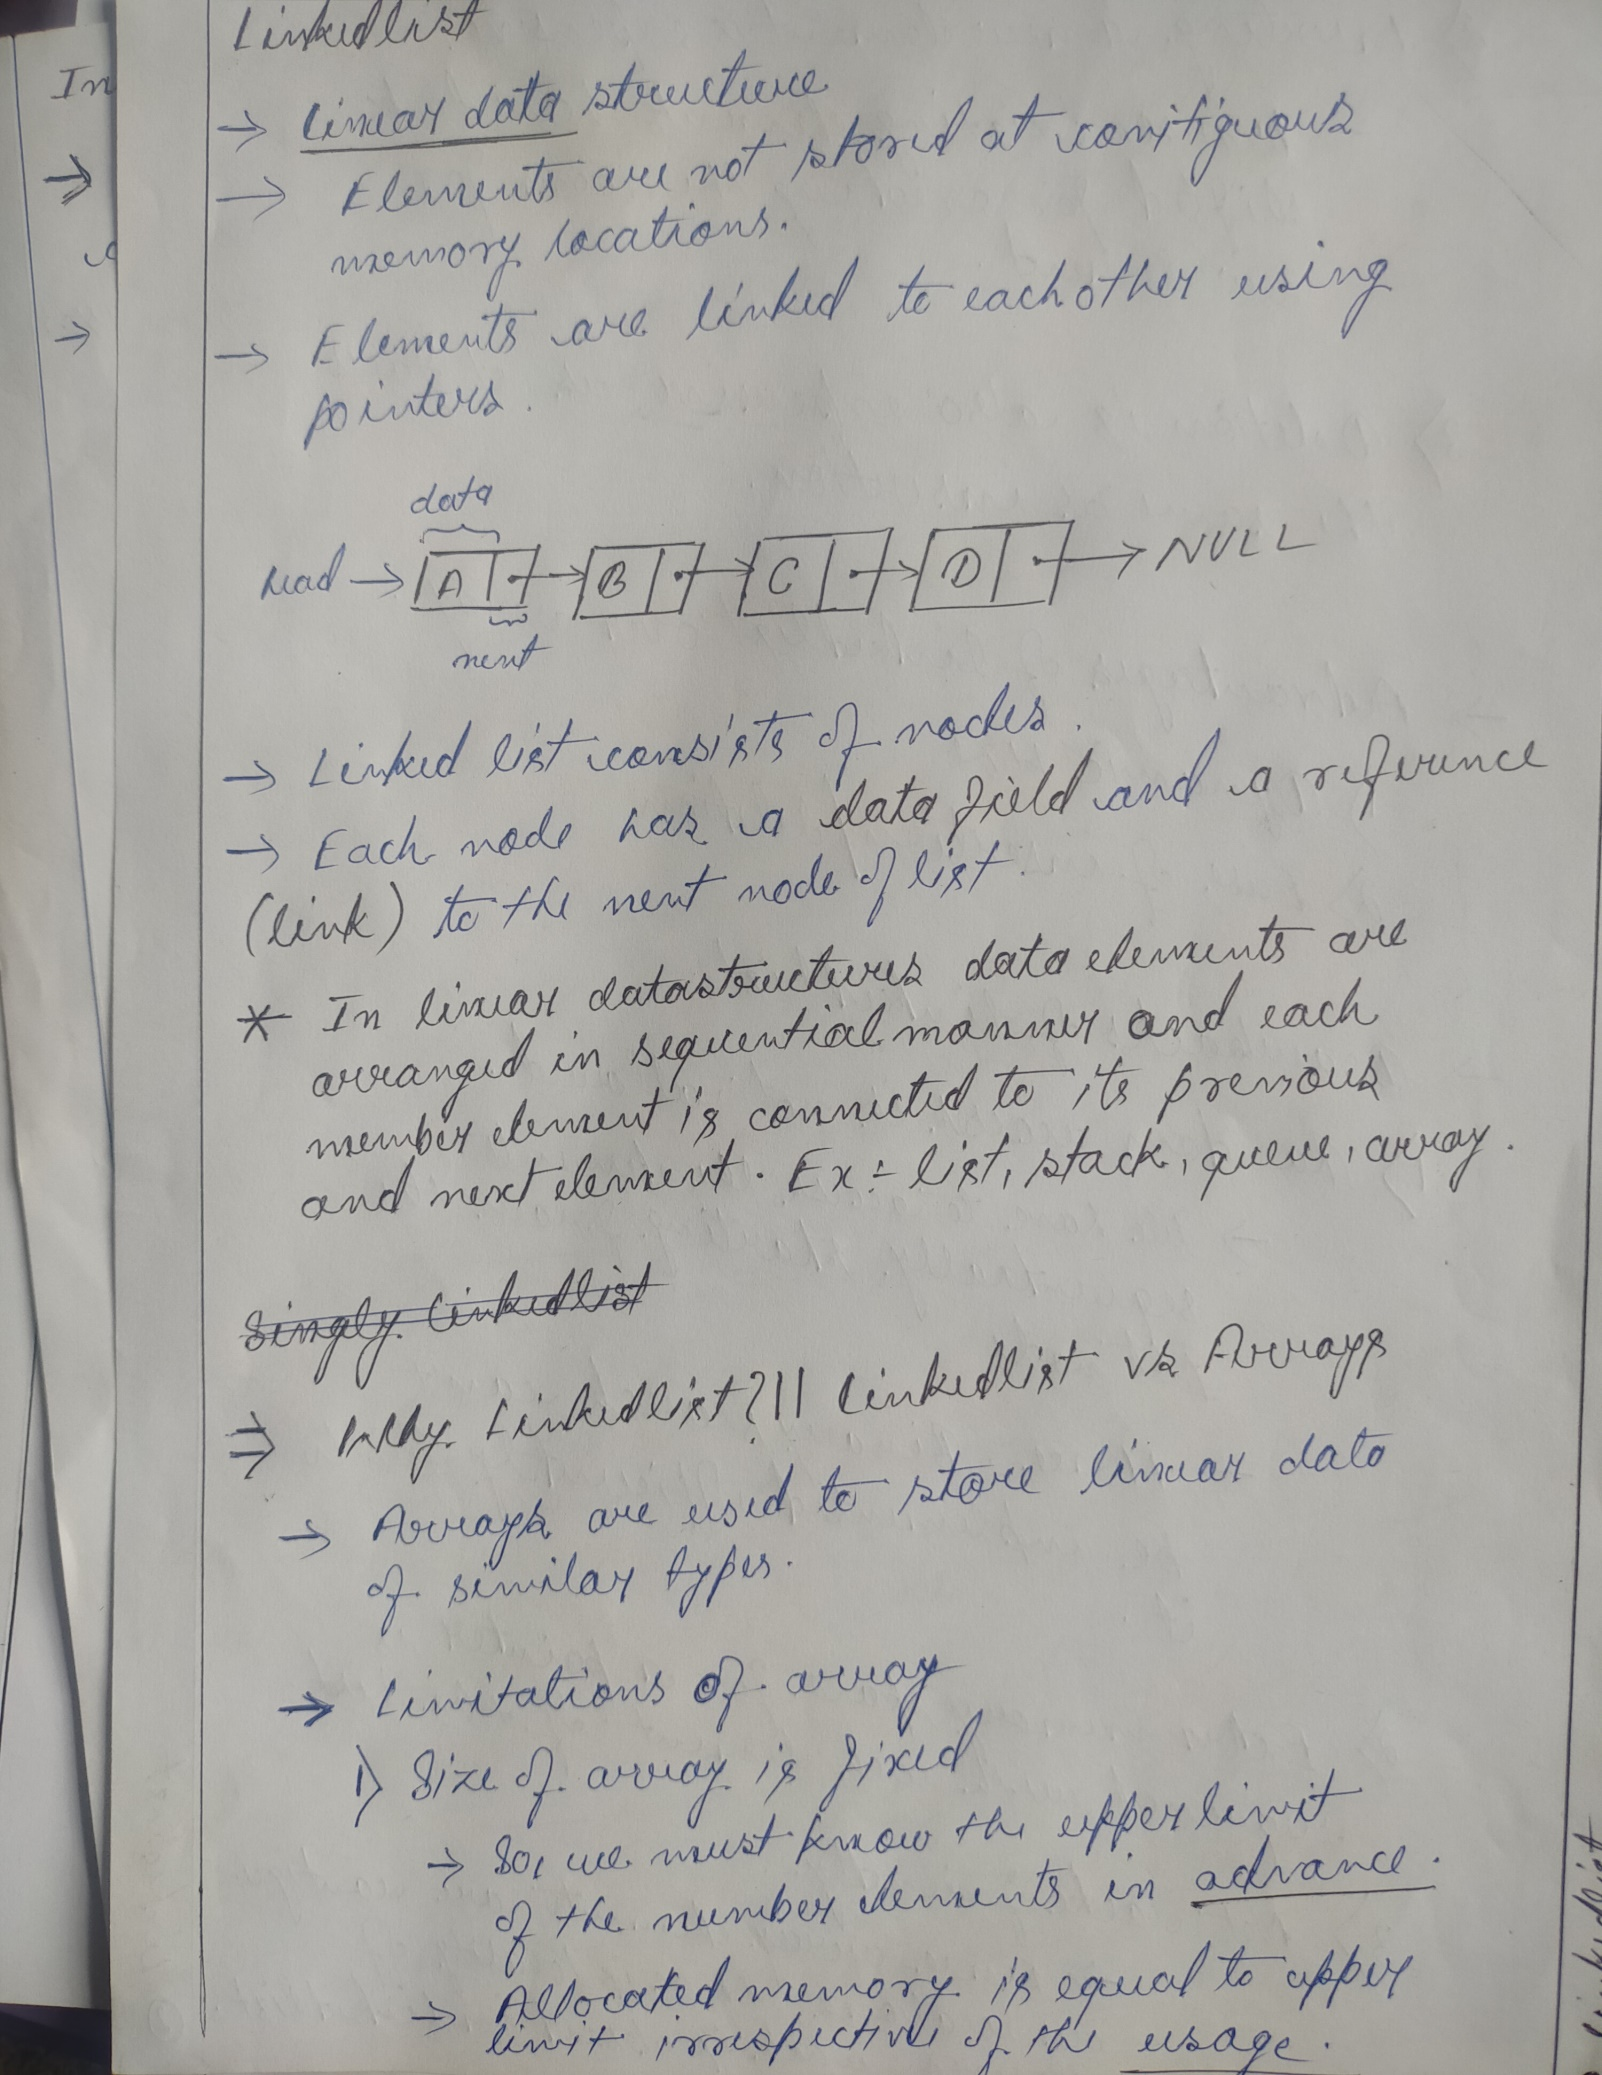 Linkedlist
→ Linear data structure
→ Elements are not stored at contiguous
memory locations.
→ Elements are linked to each other using
pointers.
data
head → A → B → C → D → NULL
next
→ Linked list consists of nodes.
→ Each node has a data field and a reference
(link) to the next node of list.
* In linear datastructures data elements are
arranged in sequential manner and each
member element is connected to its previous
and next element. Ex:- list, stack, queue, array.
Singly Linkedlist
⇒ Why Linkedlist? || Linkedlist vs Arrays
→ Arrays are used to store linear data
of similar types.
→ Limitations of array
1) Size of array is fixed
→ So, we must know the upper limit
of the number elements in advance.
→ Allocated memory is equal to upper
limit irrespective of the usage.
In
⇒
→
Linkedlist